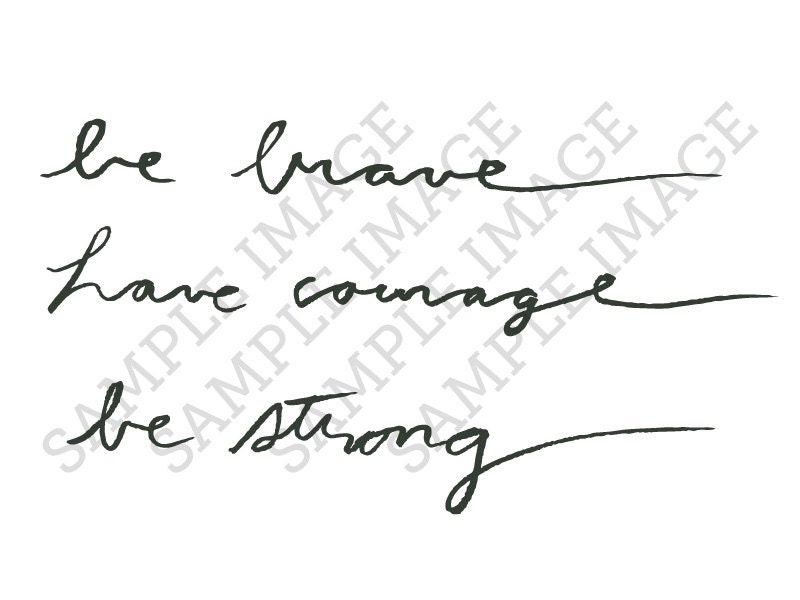 be brave
have courage
be strong
SAMPLE IMAGE
SAMPLE IMAGE
SAMPLE IMAGE
SAMPLE IMAGE